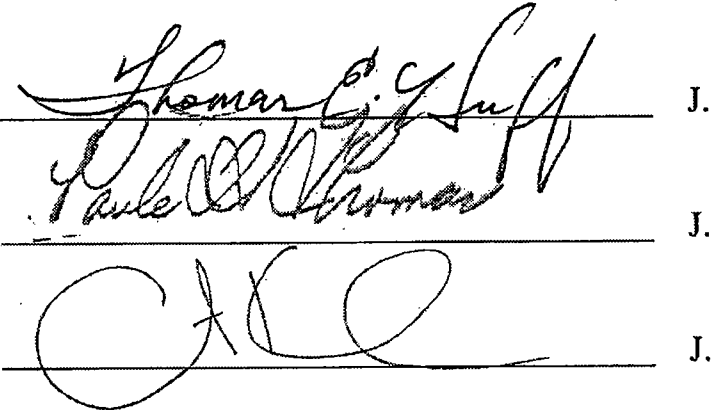 Thomas E. Huff J.
Paula Thomas J.
J.